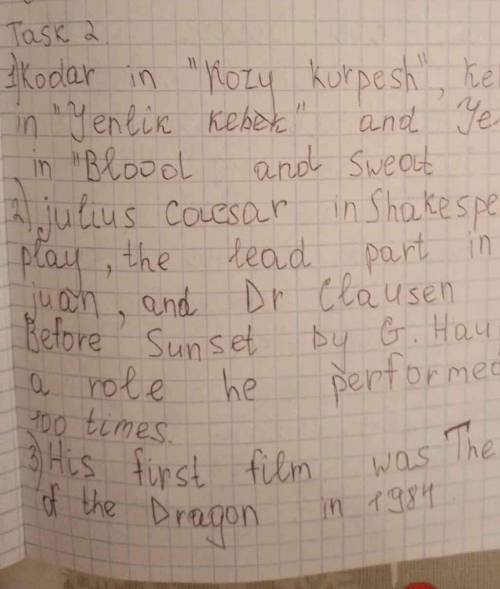 Task 2.
1) Kodar in "Kozy Kurpesh", Ke
in "Yenlik Kebek" and Ye
in "Bloood and Sweat
2) julius Caesar in Shakespe
play, the lead part in
juan, and Dr Clausen
Before Sunset by G. Hau
a role he performed
100 times.
3) His first film was The
of the Dragon in 1984